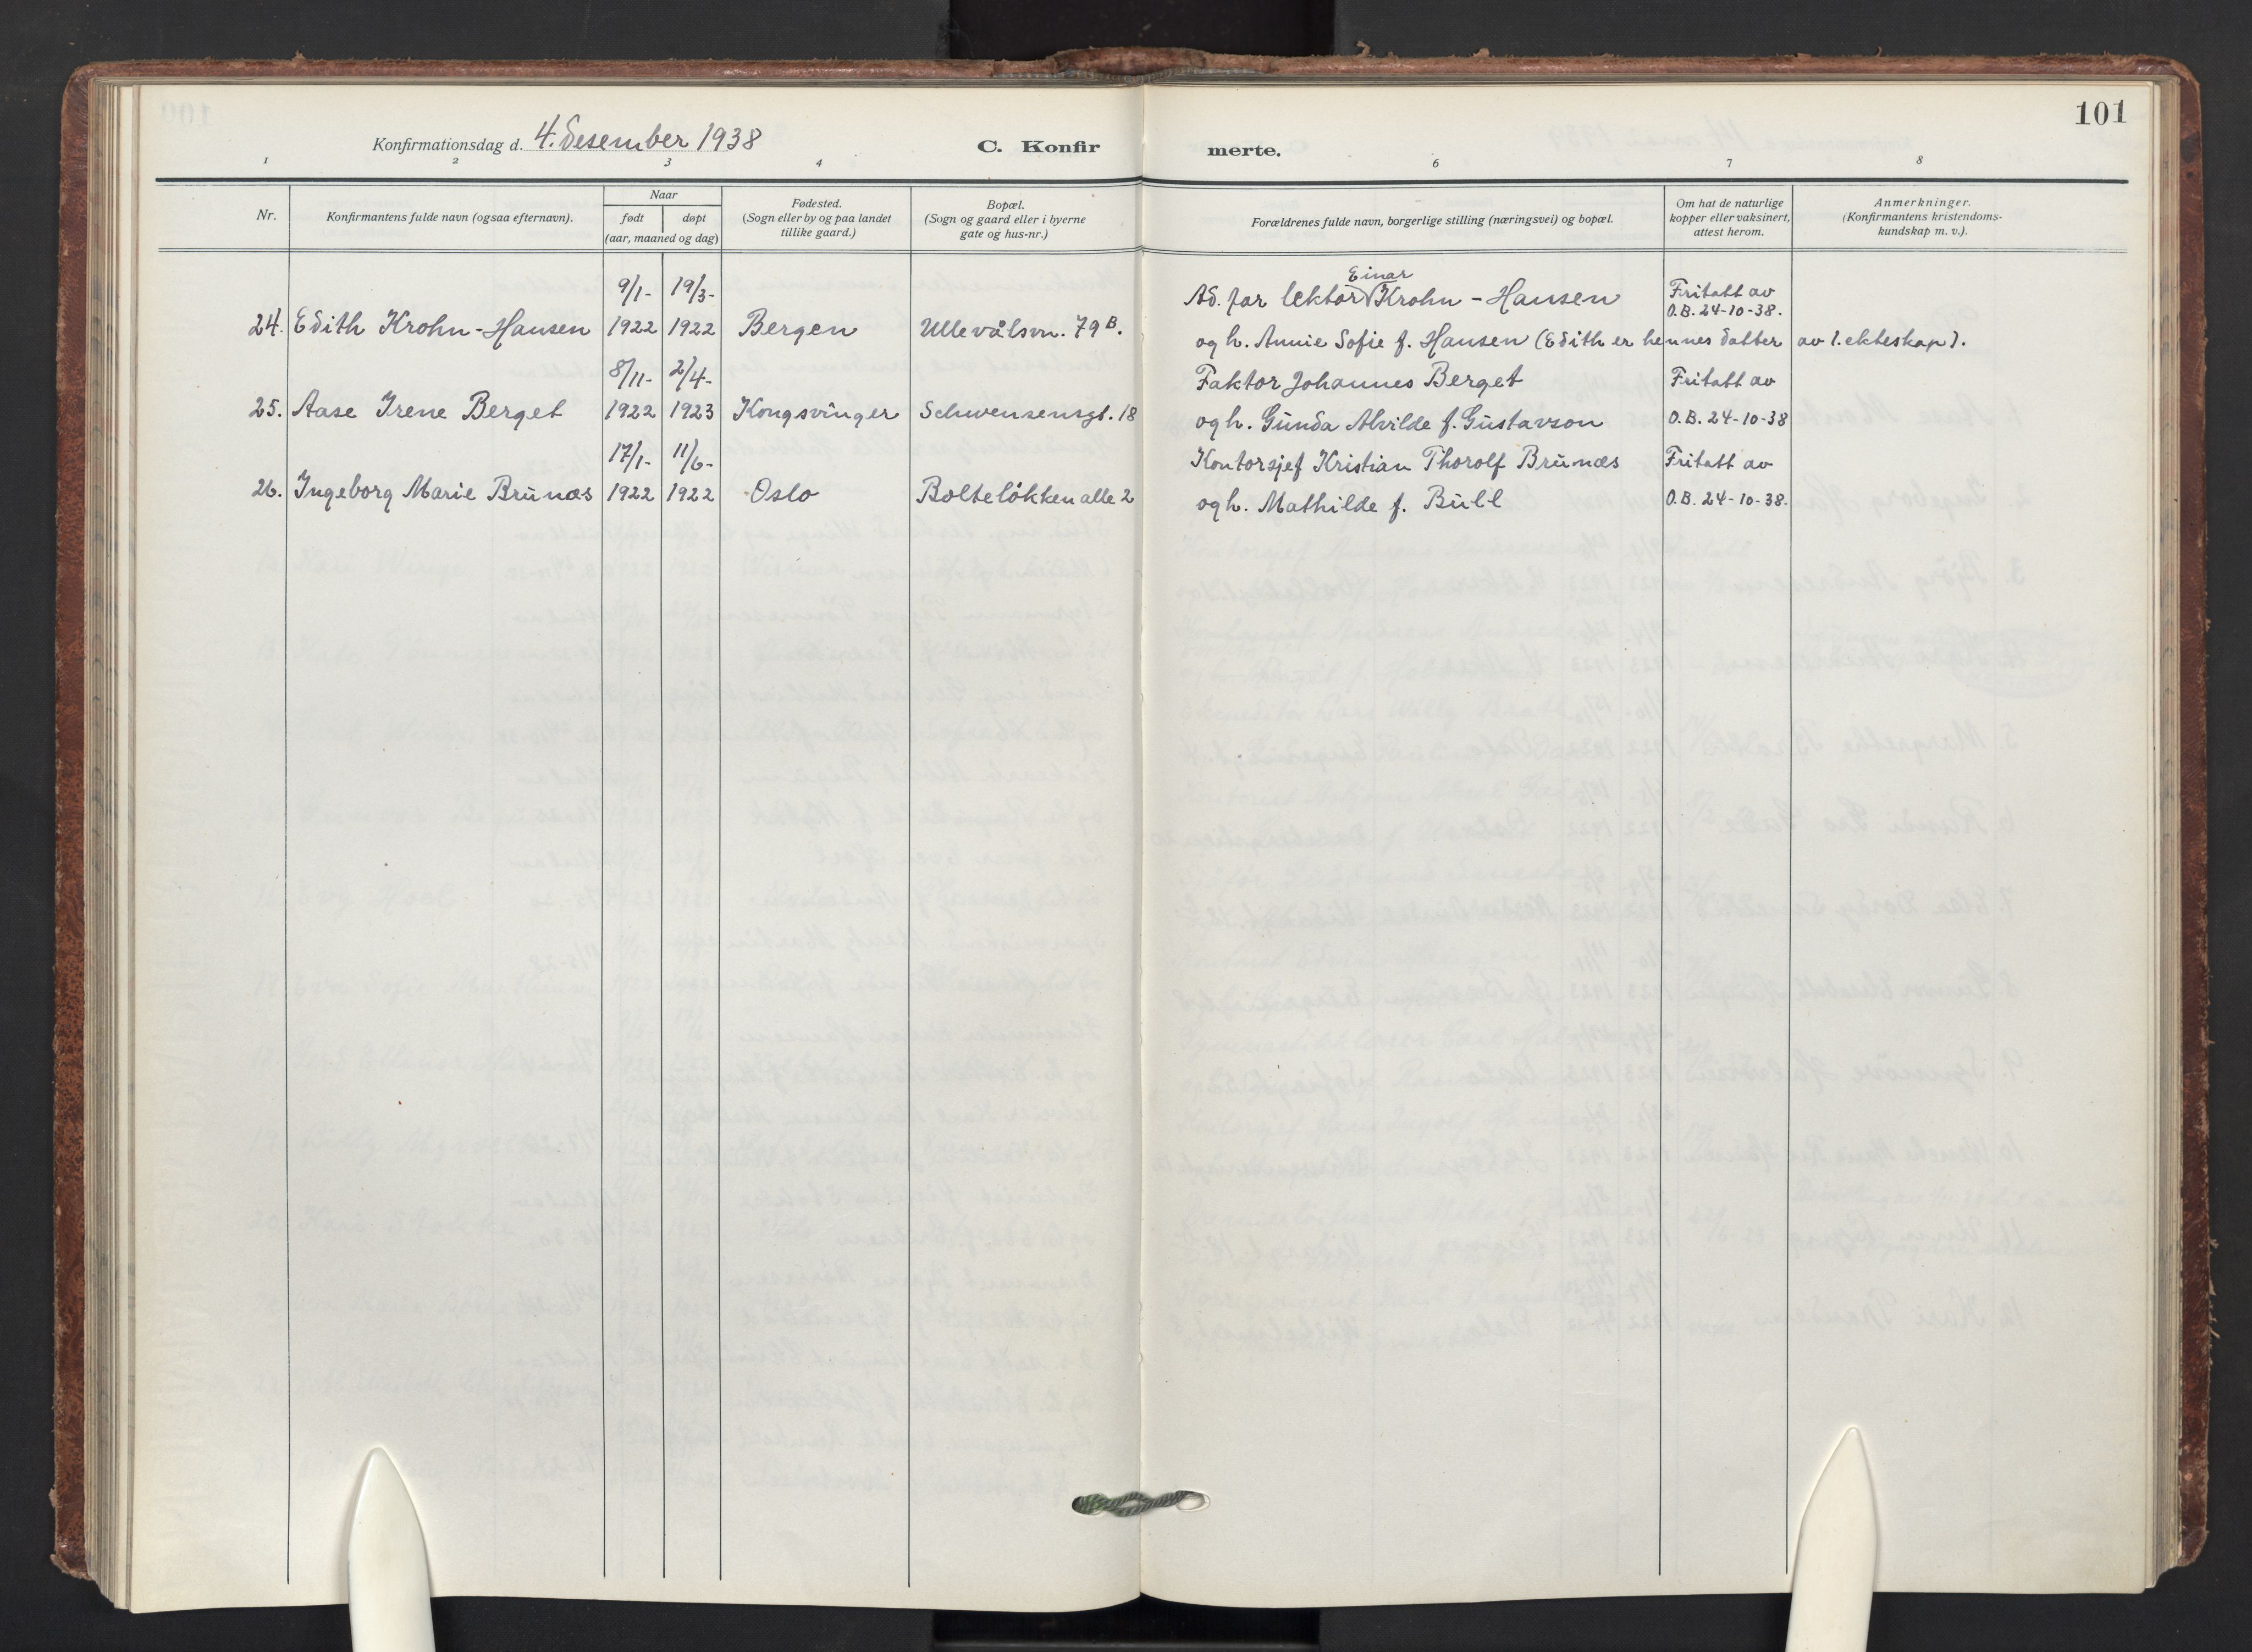 101
Konfirmationsdag d. 4. desember 1938
C. Konfir
merte.
1 2 3 4 6 7 8
Nr.
Konfirmantens fulde navn (ogsaa efternavn).
Naar
født døpt
(aar, maaned og dag)
Fødested.
(Sogn eller by og paa landet
tillike gaard.)
Bopæl.
(Sogn og gaard eller i byerne
gate og hus-nr.)
Forældrenes fulde navn, borgerlige stilling (næringsvei) og bopæl.
Om hat de naturlige
kopper eller vaksinert,
attest herom.
Anmerkninger.
(Konfirmantens kristendoms-
kundskap m. v.).
9/1- 19/3- Ad. far lektor Einar Krohn-Hansen Fritatt av
O.B. 24-10-38.
24. Edith Krohn-Hansen 1922 1922 Bergen Ullevålsvn. 79 B. og h. Annie Sofie f. Hansen (Edith er hennes datter av 1. ekteskap).
8/11- 2/4- Faktor Johannes Berget Fritatt av
25. Aase Irene Berget 1922 1923 Kongsvinger Schwensensgt. 18 og h. Gunda Alvilde f. Gustavson O.B. 24-10-38
17/1- 11/6- Kontorsjef Kristian Thorolf Brunæs Fritatt av
26. Ingeborg Marie Brunæs 1922 1922 Oslo Bolteløkken alle 2 og h. Mathilde f. Bull O.B. 24-10-38.